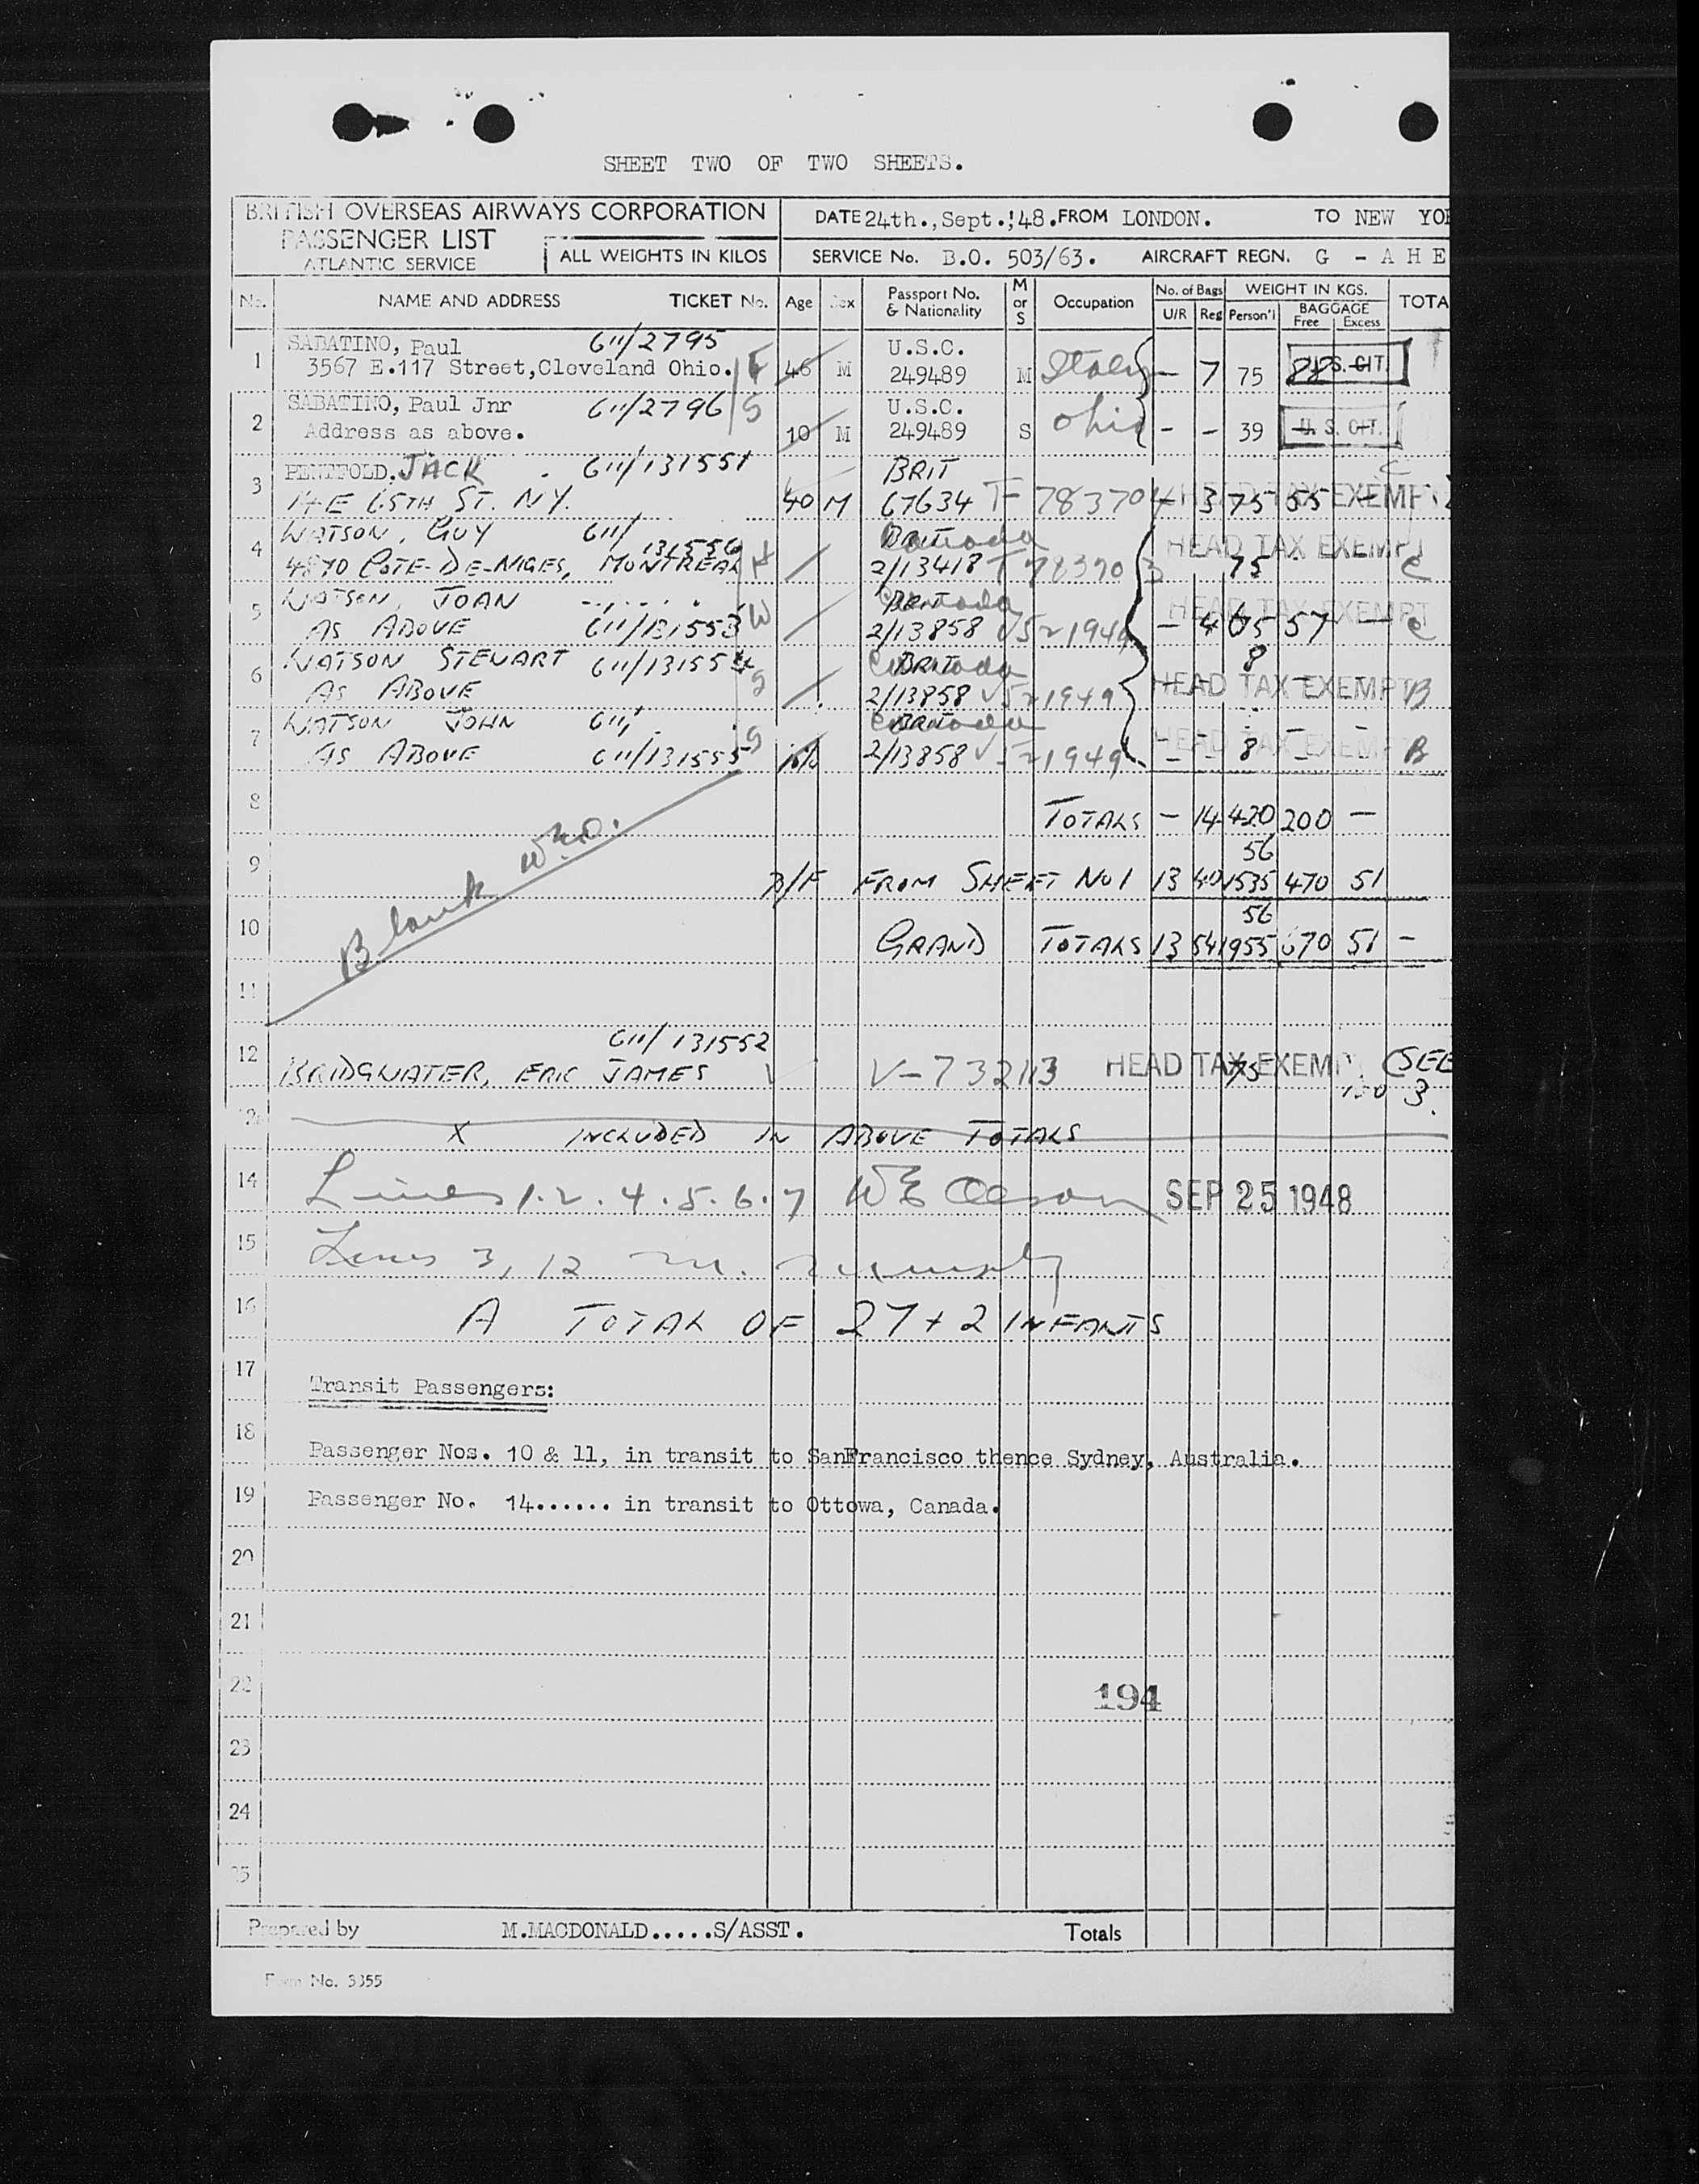 SHEET TWO OF TWO SHEETS.
BRITISH OVERSEAS AIRWAYS CORPORATION
PASSENGER LIST
ATLANTIC SERVICE
ALL WEIGHTS IN KILOS
DATE 24th.,Sept.!48. FROM LONDON. TO NEW YO
SERVICE No. B.O. 503/63. AIRCRAFT REGN. G - A H E
No. NAME AND ADDRESS TICKET No. Age Sex Passport No. & Nationality M or S Occupation No. of Bags U/R Reg WEIGHT IN KGS. Person'l BAGGAGE Free Excess TOTA
1 SABATINO, Paul 611/2795 U.S.C.
3567 E.117 Street,Cleveland Ohio. F 46 M 249489 M Italy - 7 75 U.S. CIT.
2 SABATINO, Paul Jnr 611/2796 S U.S.C.
Address as above. 10 M 249489 S Ohio - - 39 U.S. CIT.
3 PENTFOLD, JACK 611/131551 BRIT
14 E 65TH ST. N.Y. 40 M 67634 T-78370 3 75 55 HEAD TAX EXEMPT
4 WATSON, GUY 611/131556 BRIT Canada HEAD TAX EXEMPT
4870 COTE-DE-NIGES, MONTREAL H 2/13418 T 78370 75 C
5 WATSON, JOAN BRIT Canada HEAD TAX EXEMPT
AS ABOVE 611/131553 W 2/13858 V52194 - 4 65 57 - C
6 WATSON STEUART 611/131554 BRIT Canada 8
AS ABOVE S 2/13858 V521949 HEAD TAX EXEMPT B
7 WATSON JOHN 611/ BRIT Canada
AS ABOVE 611/131555 S 2/13858 V521949 - - 8 - - HEAD TAX EXEMPT B
8 TOTALS - 14 420 200 -
56
9 B/F FROM SHEET No 1 13 40 1535 470 51
Blank W.E.O.
56
10 GRAND TOTALS 13 54 1955 670 51 -
11
611/131552
12 BRIDGWATER, ERIC JAMES V-732113 HEAD TAX EXEMPT 75 (SEE
3.
X INCLUDED IN ABOVE TOTALS
14 Lines 1.2.4.5.6.7 WE Oleson SEP 25 1948
15 Lines 3, 12 M.
16 A TOTAL OF 27 + 2 INFANTS
17 Transit Passengers:
18 Passenger Nos. 10 & 11, in transit to SanFrancisco thence Sydney, Australia.
19 Passenger No. 14...... in transit to Ottowa, Canada.
20
21
22 194
23
24
25
Prepared by M.MACDONALD.....S/ASST. Totals
Form No. 3355